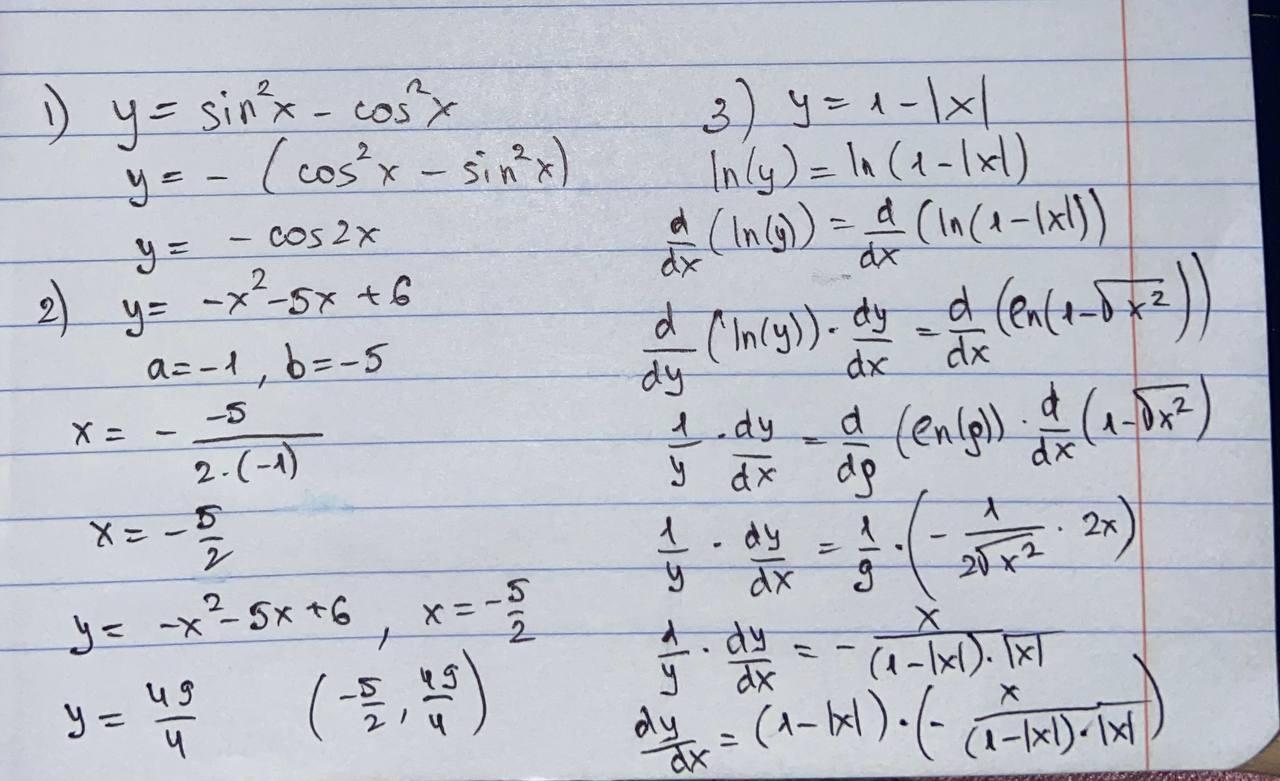 1) y = sin²x - cos²x
y = - (cos²x - sin²x)
y = - cos2x
2) y = -x² - 5x + 6
a = -1, b = -5
x = - -5/(2·(-1))
x = - 5/2
y = -x² - 5x + 6, x = -5/2
y = 49/4 (-5/2, 49/4)
3) y = 1 - |x|
ln(y) = ln(1 - |x|)
d/dx (ln(y)) = d/dx (ln(1 - |x|))
d/dy (ln(y)) · dy/dx = d/dx (ln(1 - √x²))
1/y · dy/dx = d/dg (ln(g)) · d/dx (1 - √x²)
1/y · dy/dx = 1/g · (- 1/(2√x²) · 2x)
1/y · dy/dx = - x/((1 - |x|) · |x|)
dy/dx = (1 - |x|) · (- x/((1 - |x|) · |x|))